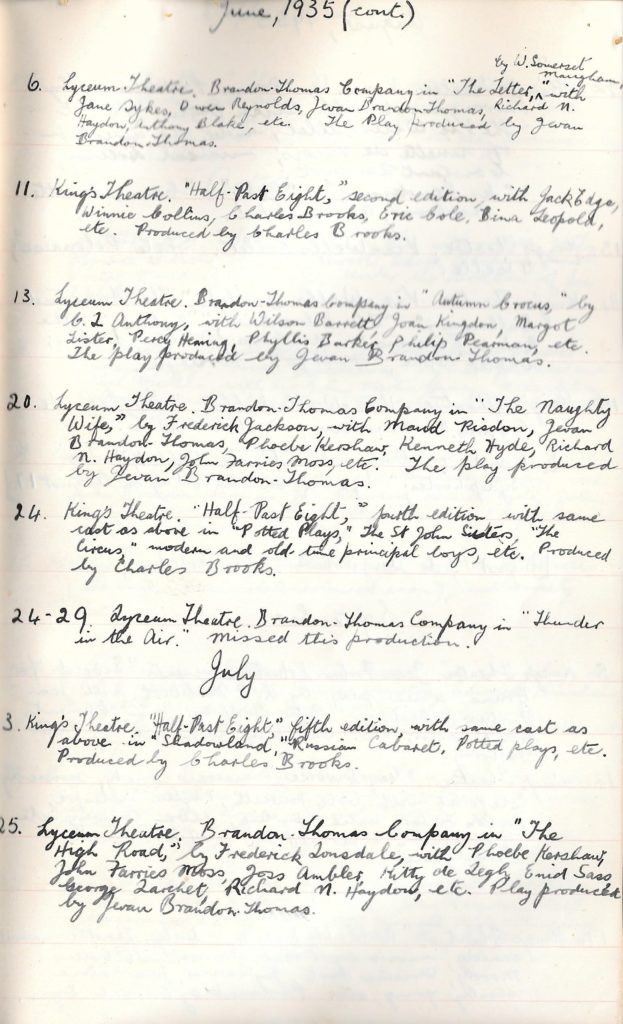 June, 1935 (cont.)
by W. Somerset
Maugham,
6. Lyceum Theatre. Brandon-Thomas Company in "The Letter," ^ with
Jane Sykes, Owen Reynolds, Jevan Brandon-Thomas, Richard N.
Haydon, Anthony Blake, etc. The Play produced by Jevan
Brandon-Thomas.
11. King's Theatre. "Half-Past Eight," second edition, with Jack Edge,
Winnie Collins, Charles Brooks, Eric Cole, Bina Leopold,
etc. Produced by Charles Brooks.
13. Lyceum Theatre. Brandon-Thomas Company in "Autumn Crocus," by
C. L Anthony, with Wilson Barrett, Joan Kingdon, Margot
Lister, Percy Heming, Phyllis Barker, Philip Pearman, etc.
The play produced by Jevan Brandon-Thomas.
20. Lyceum Theatre. Brandon-Thomas Company in "The Naughty
Wife," by Frederick Jackson, with Maud Risdon, Jevan
Brandon-Thomas, Phoebe Kershaw, Kenneth Hyde, Richard
N. Haydon, John Farries Moss, etc. The play produced
by Jevan Brandon-Thomas.
24. King's Theatre. "Half-Past Eight," fourth edition with same
cast as above in "Potted Plays," The St John Sisters, "The
Circus," modern and old-time principal boys, etc. Produced
by Charles Brooks.
24-29. Lyceum Theatre. Brandon-Thomas Company in "Thunder
in the Air." Missed this production.
July
3. King's Theatre. "Half-Past Eight," fifth edition, with same cast as
above in "Shadowland," "Russian Cabaret, Potted plays, etc.
Produced by Charles Brooks.
25. Lyceum Theatre. Brandon-Thomas Company in "The
High Road," by Frederick Lonsdale, with Phoebe Kershaw,
John Farries Moss, Joss Ambler, Kitty de Legh, Enid Sass,
George Larchet, Richard N. Haydon, etc. Play produced
by Jevan Brandon-Thomas.